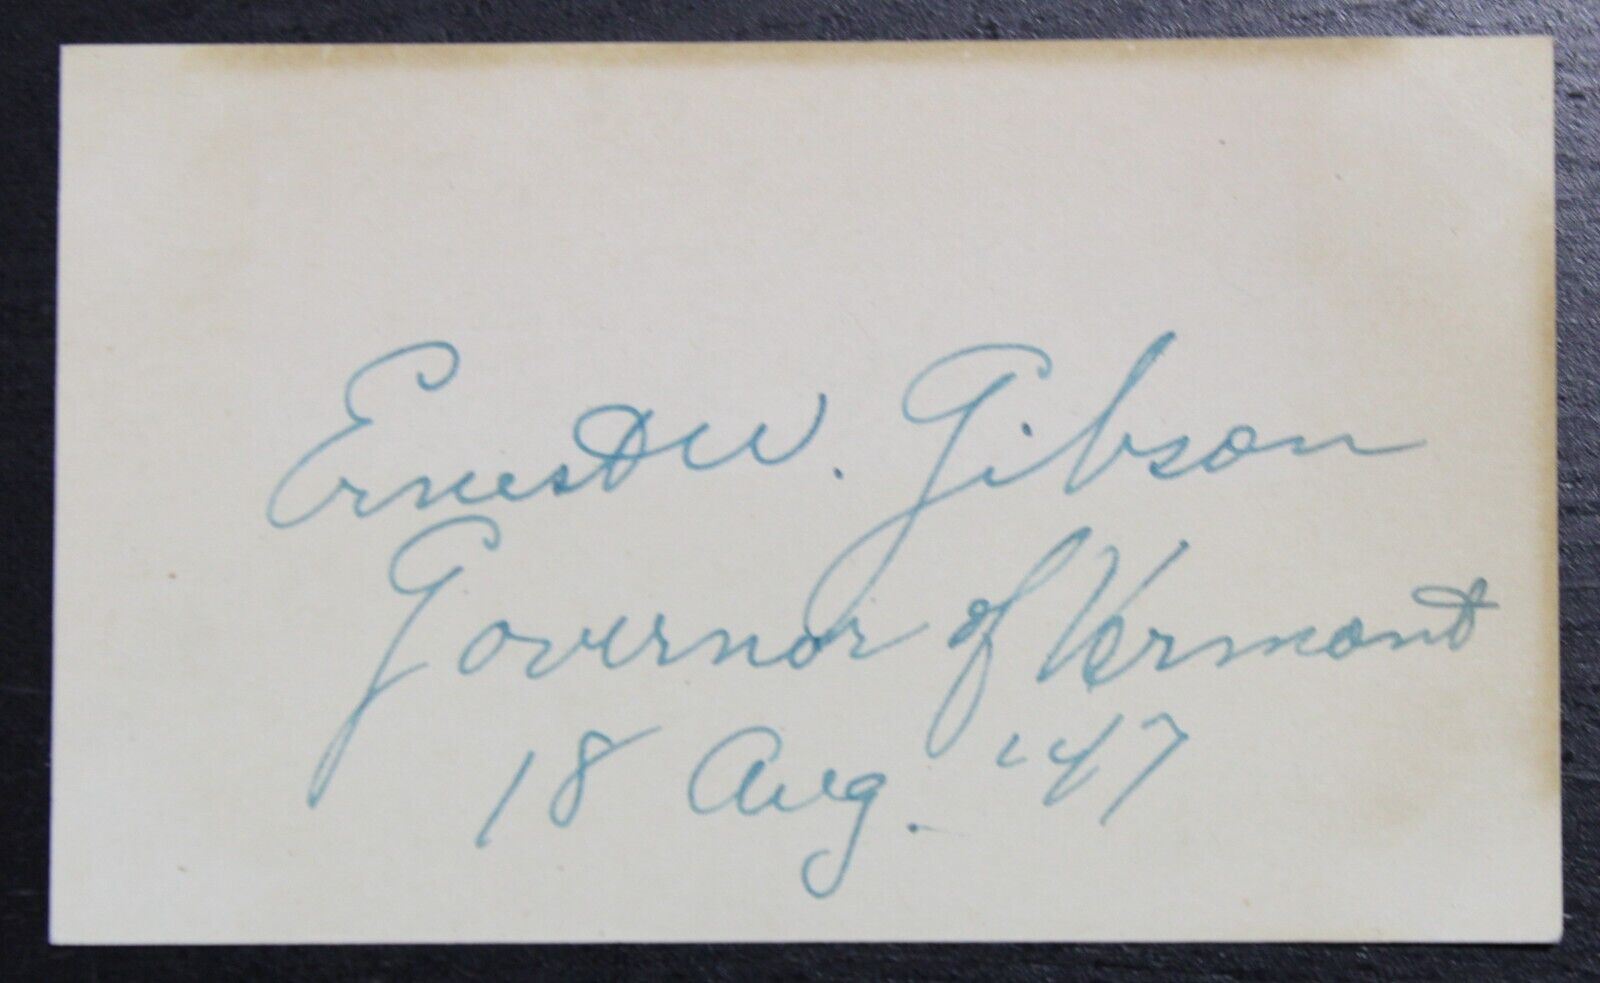 Ernest W. Gibson
Governor of Vermont
18 Aug. '47